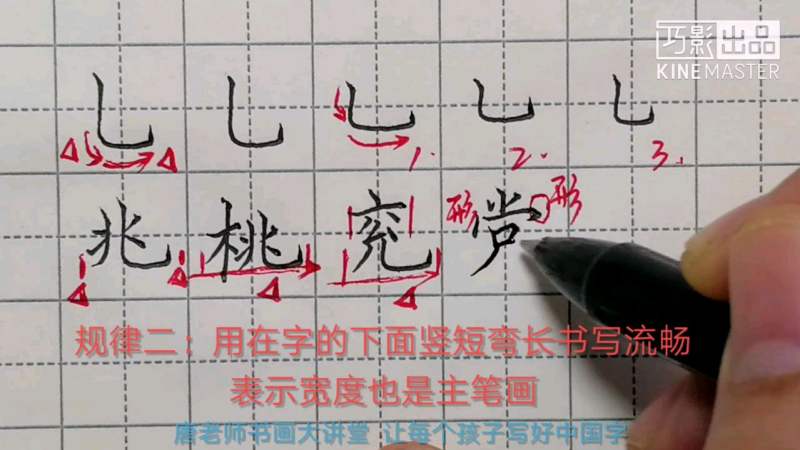 巧影出品
KINEMASTER
乚 乚 乚 乚 乚
1. 2. 3.
兆 桃 兖
形 形
规律二：用在字的下面竖短弯长书写流畅
表示宽度也是主笔画
唐老师书画大讲堂 让每个孩子写好中国字